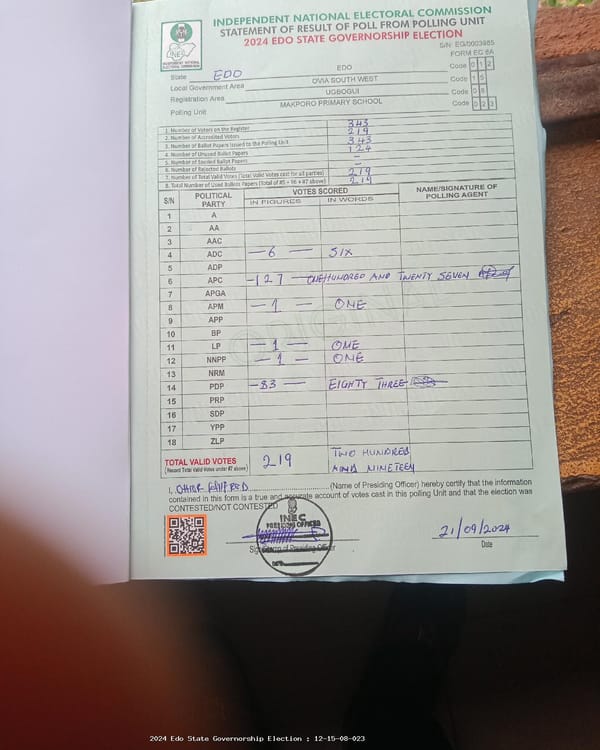 INDEPENDENT NATIONAL ELECTORAL COMMISSION
STATEMENT OF RESULT OF POLL FROM POLLING UNIT
2024 EDO STATE GOVERNORSHIP ELECTION
S/N: EG/0003985
FORM EC 8A
INEC
State EDO EDO Code 0 1 2
Local Government Area OVIA SOUTH WEST Code 1 5
Registration Area UGBOGUI Code 0 8
Polling Unit MAKPORO PRIMARY SCHOOL Code 0 2 3
1. Number of Voters on the Register 343
2. Number of Accredited Voters 219
3. Number of Ballot Papers Issued to the Polling Unit 343
4. Number of Unused Ballot Papers 124
5. Number of Spoiled Ballot Papers –
6. Number of Rejected Ballots –
7. Number of Total Valid Votes (Total Valid Votes cast for all parties) 219
8. Total Number of Used Ballots Papers (Total of #5 + #6 + #7 above) 219
S/N POLITICAL PARTY VOTES SCORED NAME/SIGNATURE OF POLLING AGENT
IN FIGURES IN WORDS
1 A
2 AA
3 AAC
4 ADC — 6 — SIX
5 ADP
6 APC – 127 — ONE HUNDRED AND TWENTY SEVEN
7 APGA
8 APM — 1 — ONE
9 APP
10 BP
11 LP — 1 — ONE
12 NNPP — 1 — ONE
13 NRM
14 PDP – 83 — EIGHTY THREE
15 PRP
16 SDP
17 YPP
18 ZLP
TOTAL VALID VOTES 219 TWO HUNDRED
(Record Total Valid Votes under #7 above) AND NINETEEN
I, (Name of Presiding Officer) hereby certify that the information
contained in this form is a true and accurate account of votes cast in this polling Unit and that the election was
CONTESTED/NOT CONTESTED
INEC
PRESIDING OFFICER
Signature of Presiding Officer
DATE
21/09/2024
Date
2024 Edo State Governorship Election : 12-15-08-023